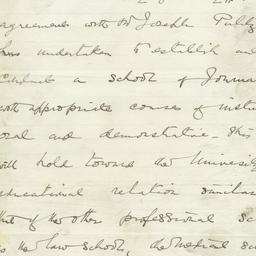 agreement with Mr Joseph Pulitz
has undertaken to establish and
conduct a school of Journa
with appropriate courses of instru
oral and demonstrative. This
will hold toward the Universit
educational relation similar
that of the other professional sc
as the law school, the medical sc